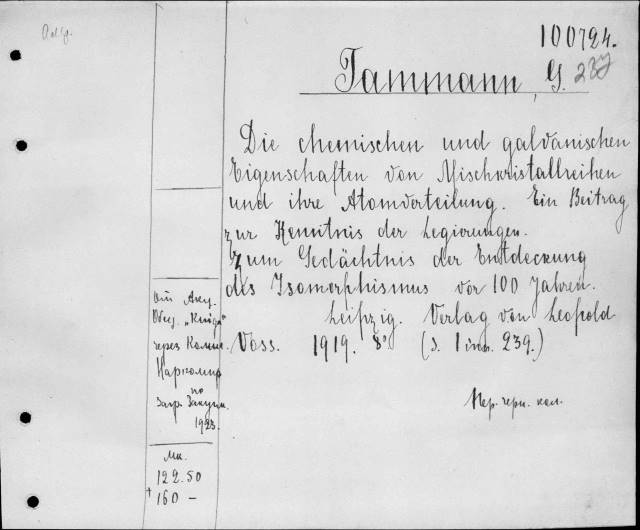 100724.
Tammann, G.
237
Die chemischen und galvanischen
Eigenschaften von Mischkristallreihen
und ihre Atomverteilung. Ein Beitrag
zur Kenntnis der Legierungen.
Zum Gedächtnis der Entdeckung
des Isomorphismus vor 100 Jahren.
Leipzig. Verlag von Leopold
Voss. 1919. 8° (S. 1 239.)
Пер. черн. кол.
Акц.
Общ. „Книга“
через
по
Загр. Закупк.
1923.
Мк.
122.50
+ 160 –